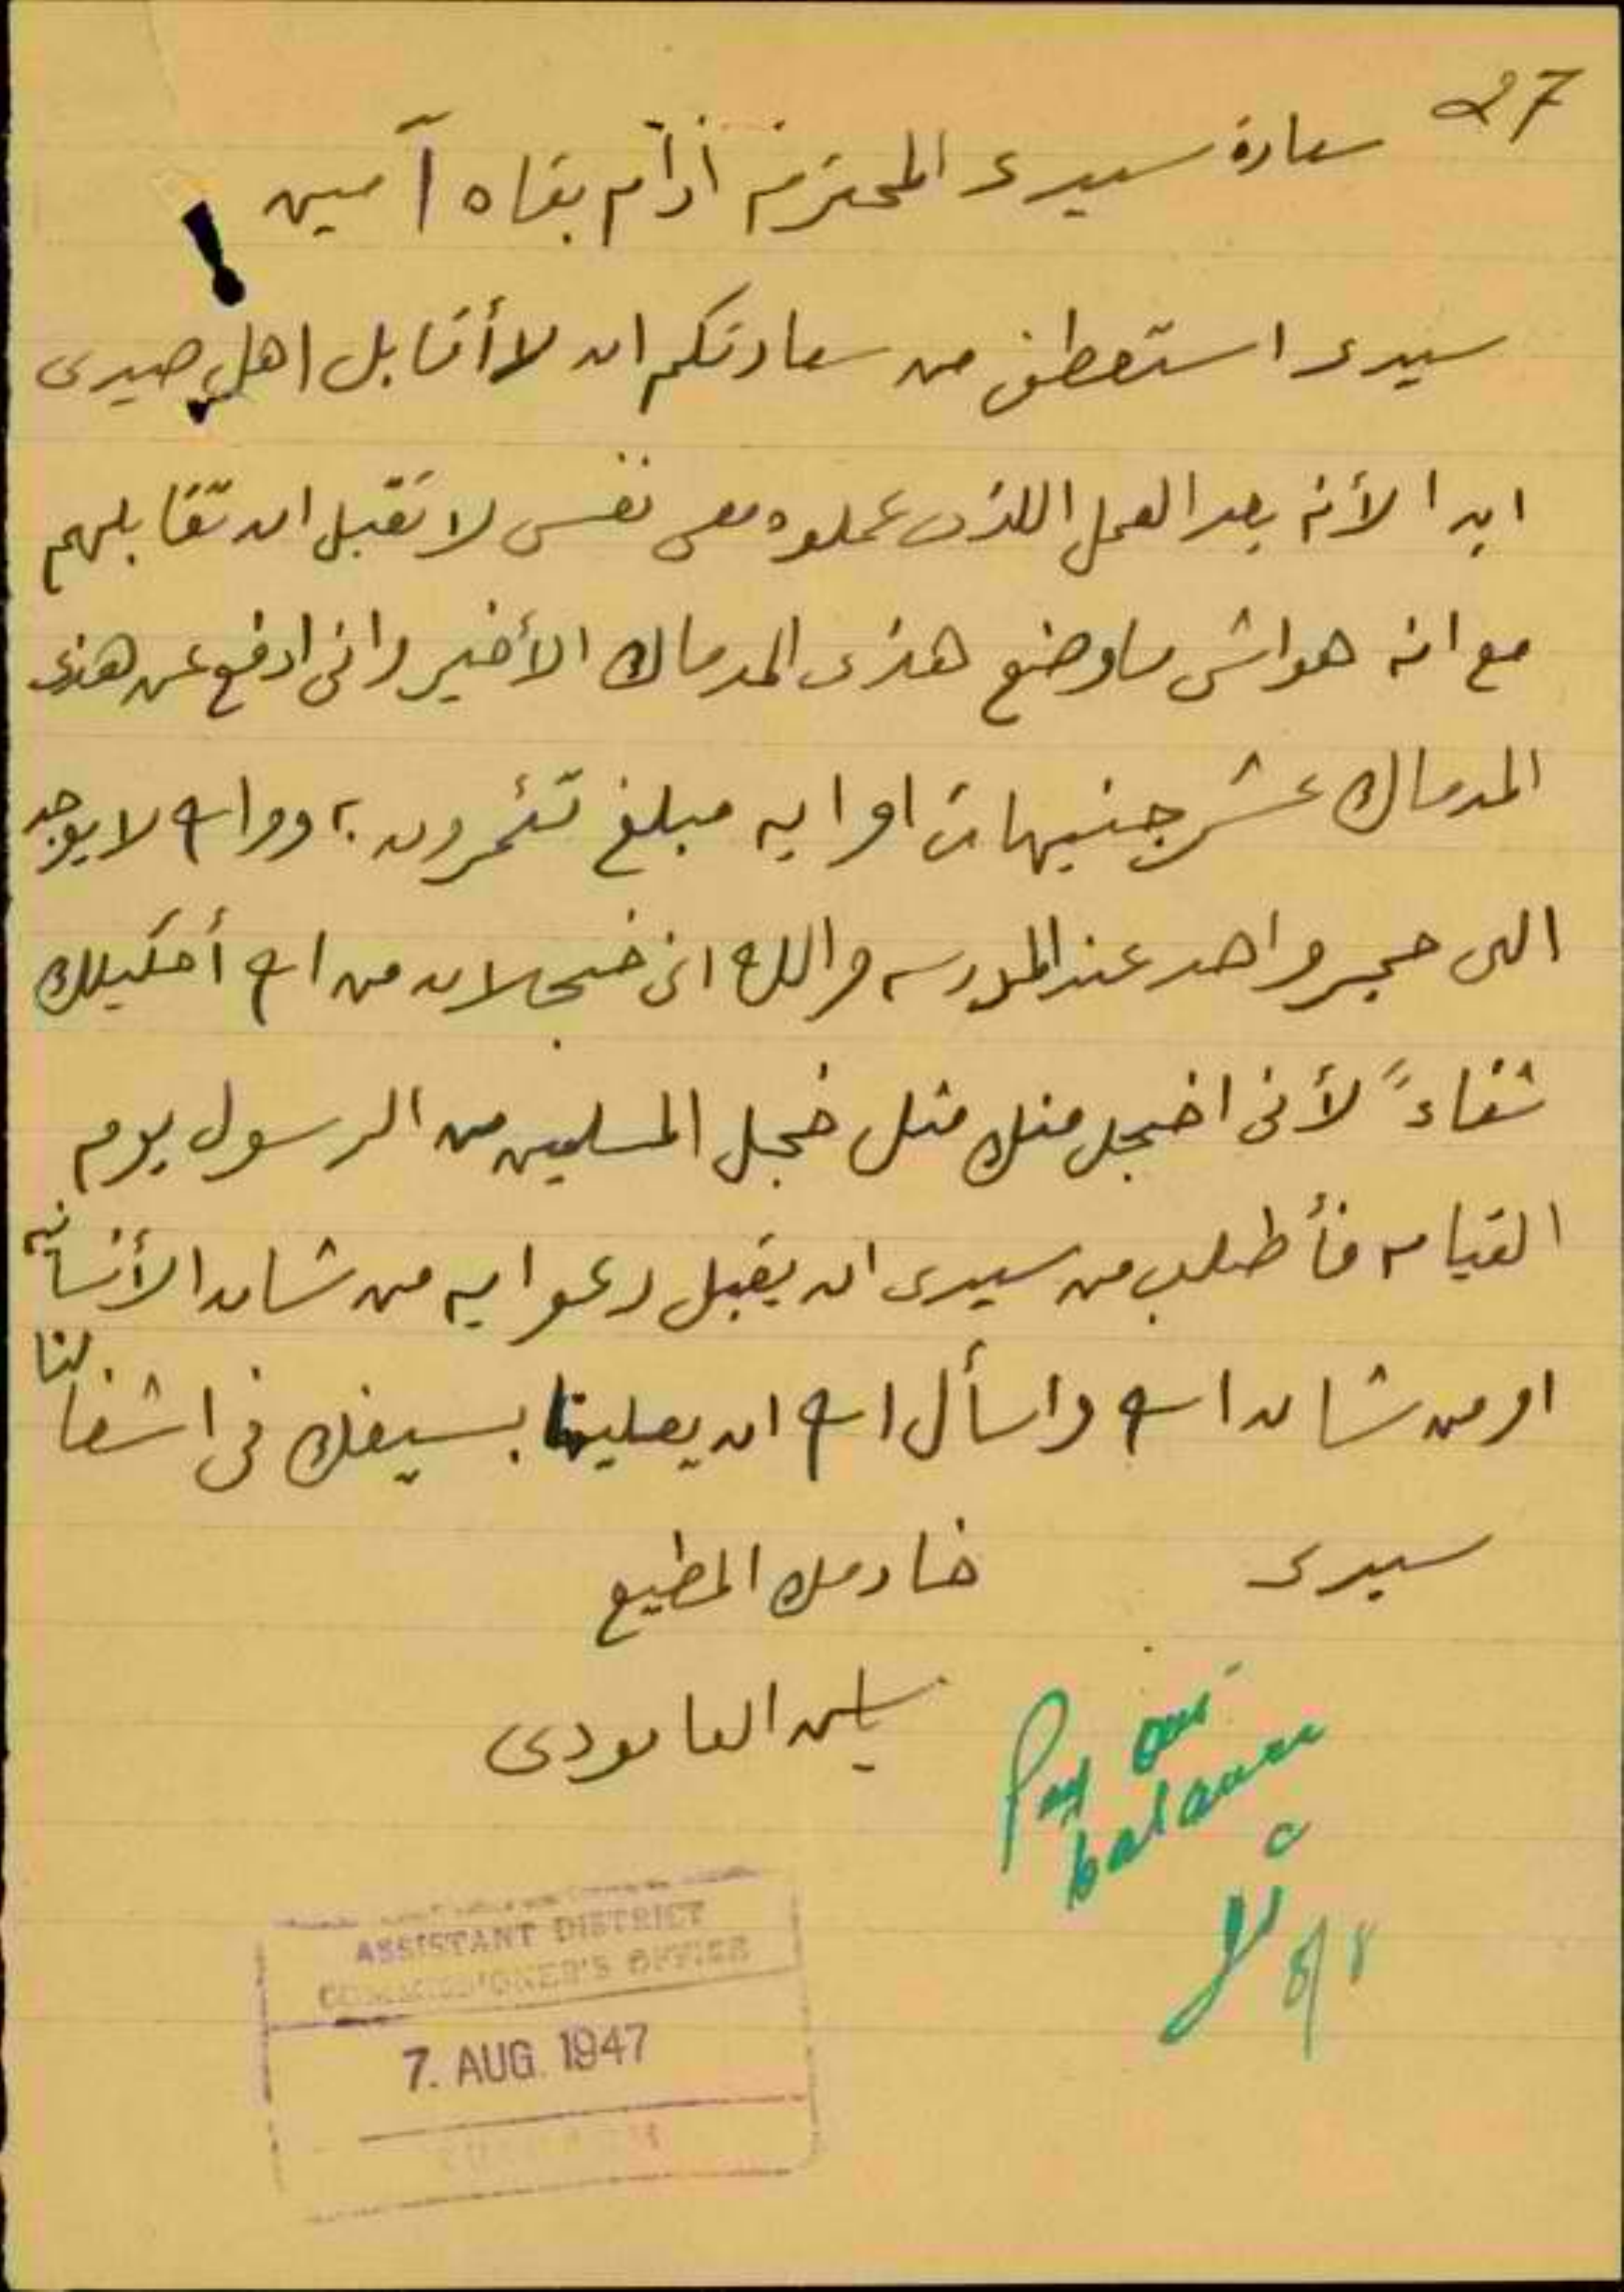 27
سعادة سيدى المحترم أدام بقاه آمين
سيدى استعطف من سعادتكم ان لا أقابل اهل صيدى
ابدا لأنه بعد العمل اللذى عملوه معى نفسى لا تقبل ان تقابلهم
مع انه هواش ماوضع هذى المدماك الأخير وانى ادفع عن هذى
المدماك عشر جنيهات او ايه مبلغ تئمرون به ووالله لا يوجد
الى حجر واحد عند المدرسه والله انى خجلان من الله أحكيلك
شفاءً لأنى اخجل منك مثل خجل المسلمين من الرسول يوم
القيامه فأطلب من سيدى ان يقبل دعوايه من شان الأنسانيه
او من شان الله واسأل الله ان يعلينا بسيفك فى اشغالنا
سيدى خادمك المطيع
ياسين العامودى
Pay our
balance
8/8
ASSISTANT DISTRICT
COMMISSIONER'S OFFICE
7. AUG. 1947